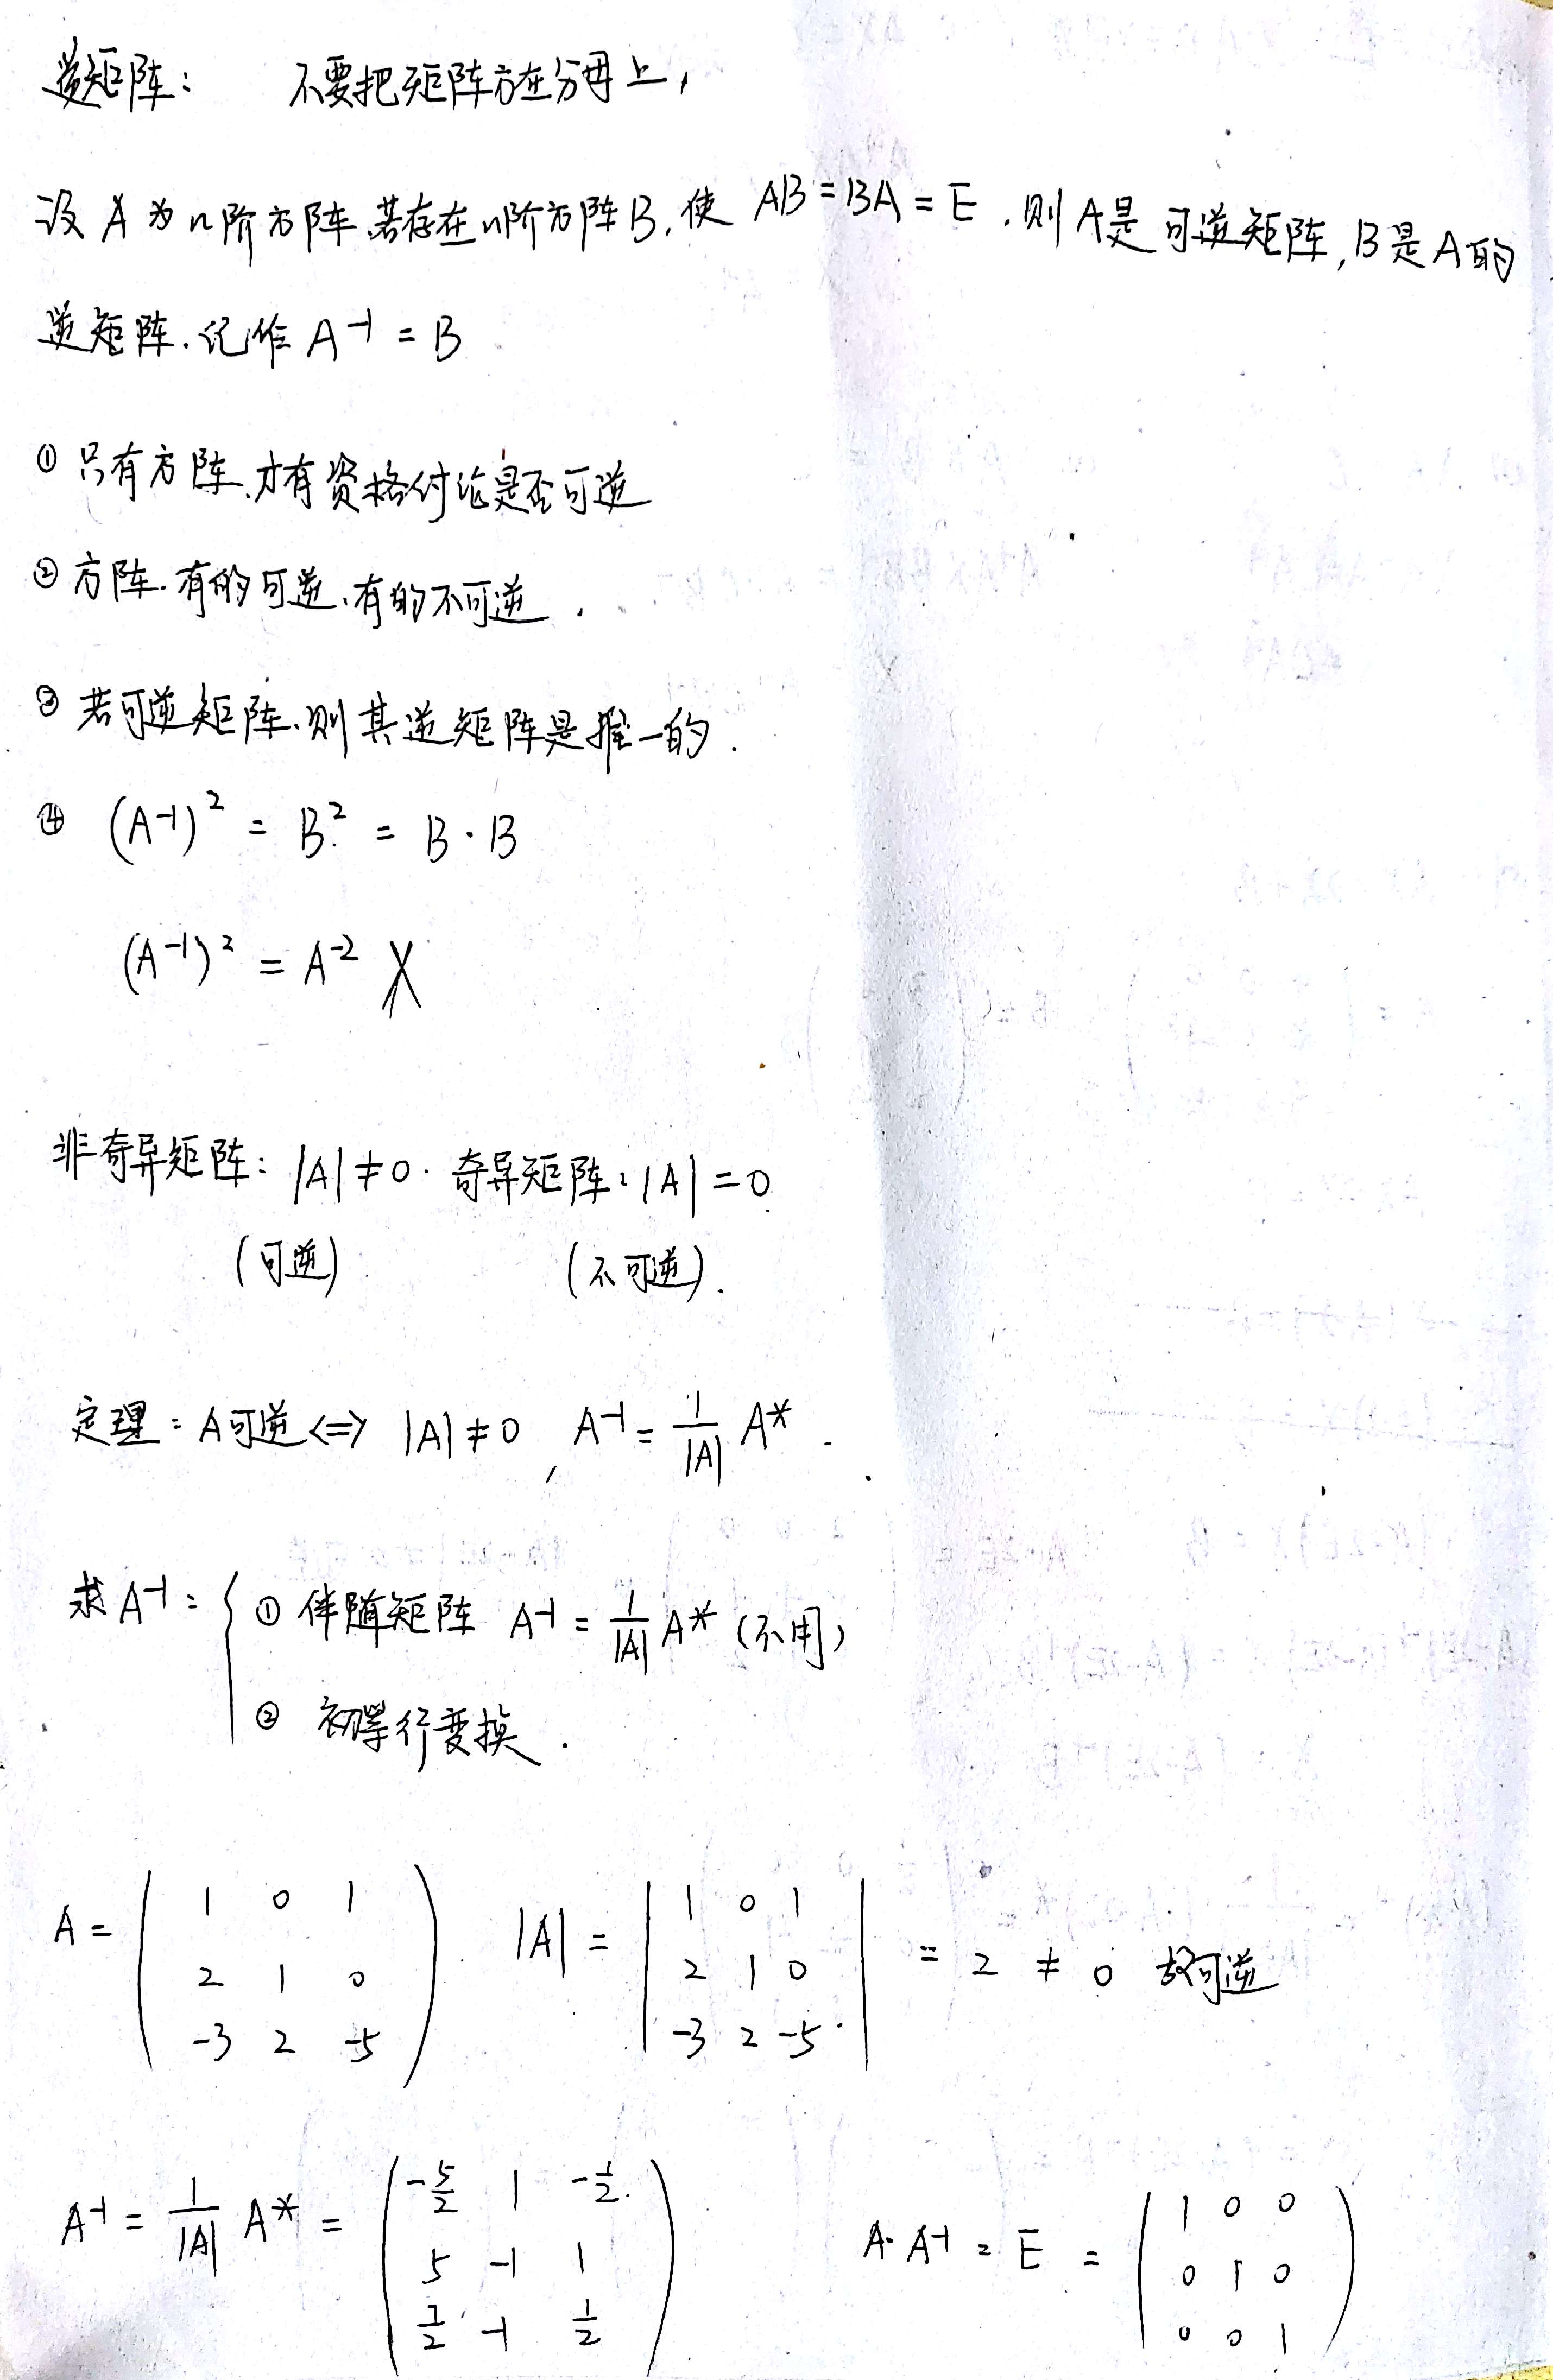 逆矩阵： 不要把矩阵方在分母上，
设 A 为 n阶方阵，若存在n阶方阵B，使 AB = BA = E ，则A是可逆矩阵，B是A的
逆矩阵．记作 A⁻¹ = B
① 只有方阵，才有资格讨论是否可逆
② 方阵．有的可逆，有的不可逆．
③ 若可逆矩阵，则其逆矩阵是唯一的．
④ (A⁻¹)² = B² = B · B
(A⁻¹)² = A⁻² ╳
非奇异矩阵：|A| ≠ 0． 奇异矩阵：|A| = 0
（可逆） （不可逆）．
定理：A可逆 <=> |A| ≠ 0 ， A⁻¹ = 1/|A| A* ．
求A⁻¹： { ① 伴随矩阵 A⁻¹ = 1/|A| A* （不用）
② 初等行变换．
A = ( 1 0 1
2 1 0
-3 2 -5 )
|A| = | 1 0 1
2 1 0
-3 2 -5 | = 2 ≠ 0 故可逆
A⁻¹ = 1/|A| A* = ( -5/2 1 -1/2
5 -1 1
7/2 -1 1/2 )
A·A⁻¹ = E = ( 1 0 0
0 1 0
0 0 1 )